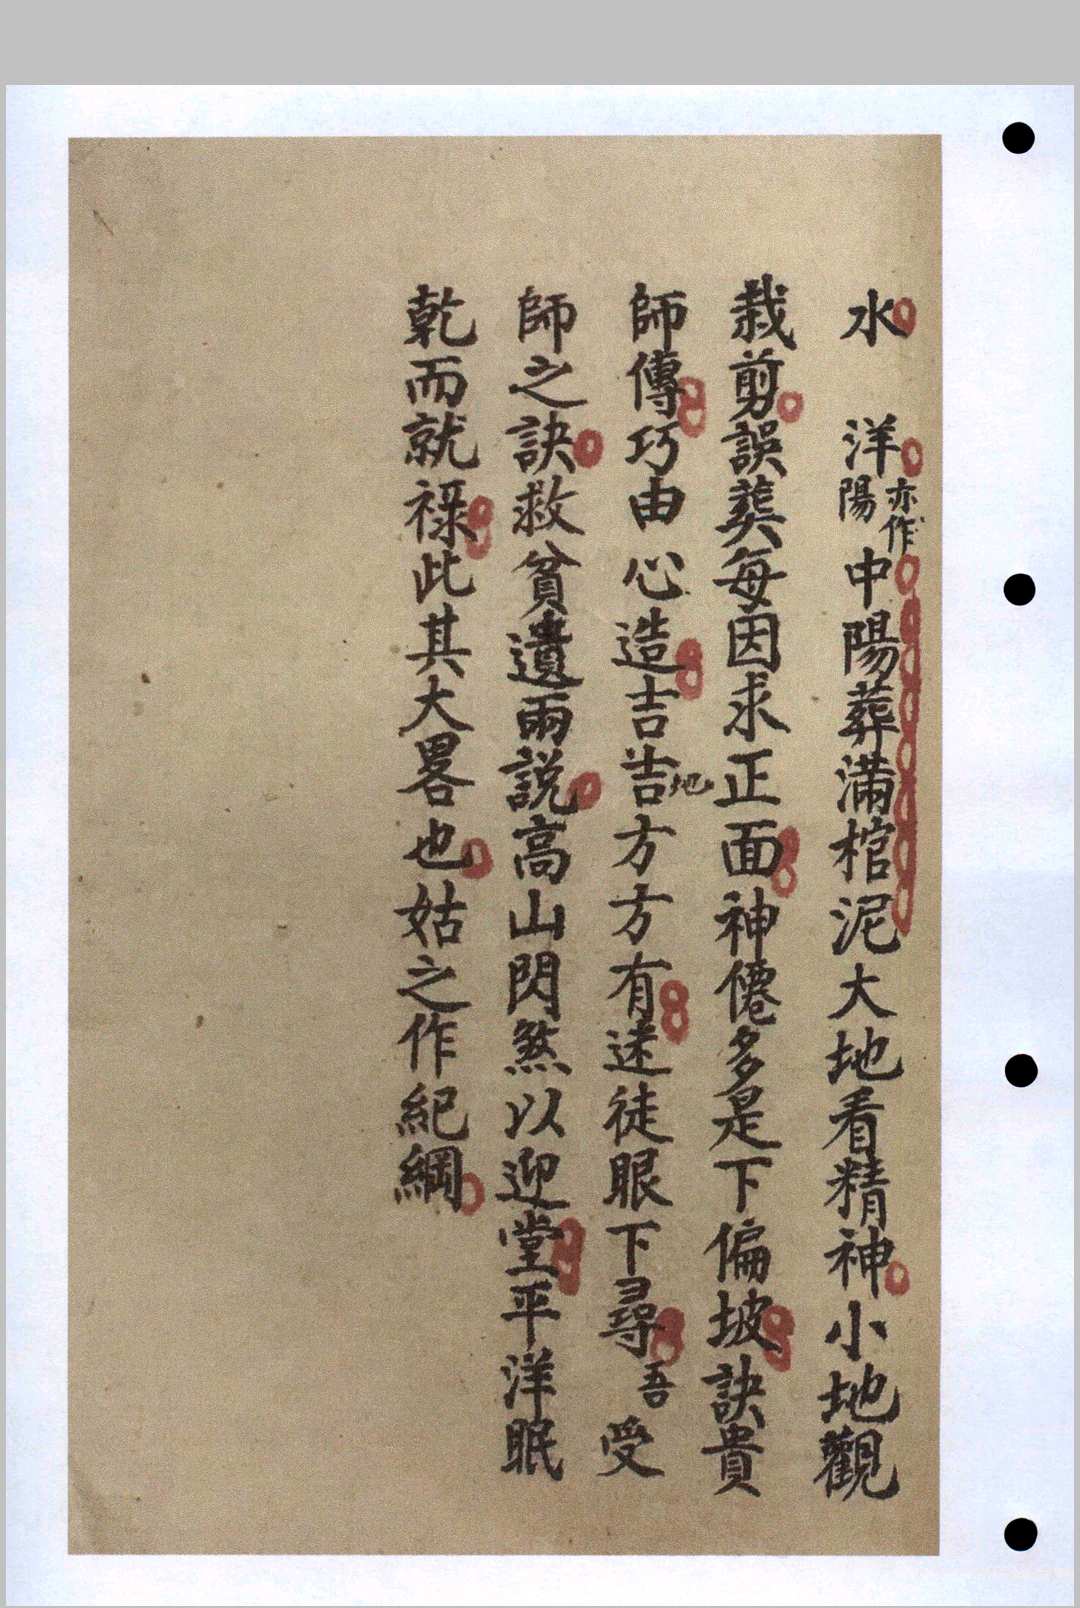 水 洋亦作陽中陽葬滿棺泥大地看精神小地觀
栽剪誤葬每因求正面神僊多是下偏坡訣貴
師傳巧由心造吉吉地方方有迷徒眼下尋吾受
師之訣救貧遺兩說高山閃煞以迎堂平洋眠
乾而就祿此其大畧也姑之作紀綱